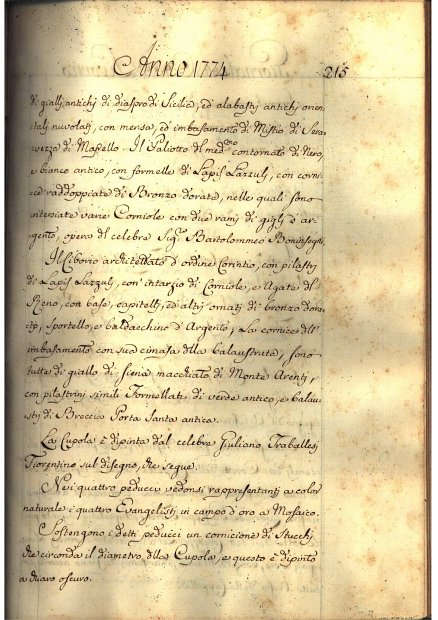 Anno 1774 215
di gialli antichj di diaspro di Sicilia, ed alabastri antichj orien-
talj nuvolatj, con mensa, ed imbasamento di Mistio di Sera-
vezza di Masello. Il Paliotto del med.mo contornato di Nero,
e bianco antico, con formelle di Lapis Lazzulj, con corni-
ce raddoppiate di Bronzo dorato, nelle quali sono
intersiate varie Corniole con due ramj di giglj d'ar-
gento, opera del celebre Sig.r Bartolommeo Boninsegni.
Il Ciborio architettato d'ordine Corintio, con pilastrj
di Lapis Lazzulj, con intarsio di Corniole, e Agate del
Reno, con base, capitellj, ed altrj ornatj di bronzo dora-
to, Sportello, e baldacchino d'Argento, La cornice dell'
imbasamento con sua cimasa della balaustrata, sono
tutte di giallo di Siena macchiato di Monte Arentj,
con pilastrini simili Formellati di verde antico, e balau-
strj di Breccia Porta Santa antica.
La Cupola è dipinta dal celebre Giuliano Traballesj
Fiorentino sul disegno, che segue.
Nei quattro peducci vedonsi rappresentanti a color
naturale i quattro Evangelistj in campo d'oro a Mosaico.
Sostengono i detti peducci un cornicione di Stucchj
che circonda il diametro della Cupola, e questo è dipinto
a chiaro oscuro.